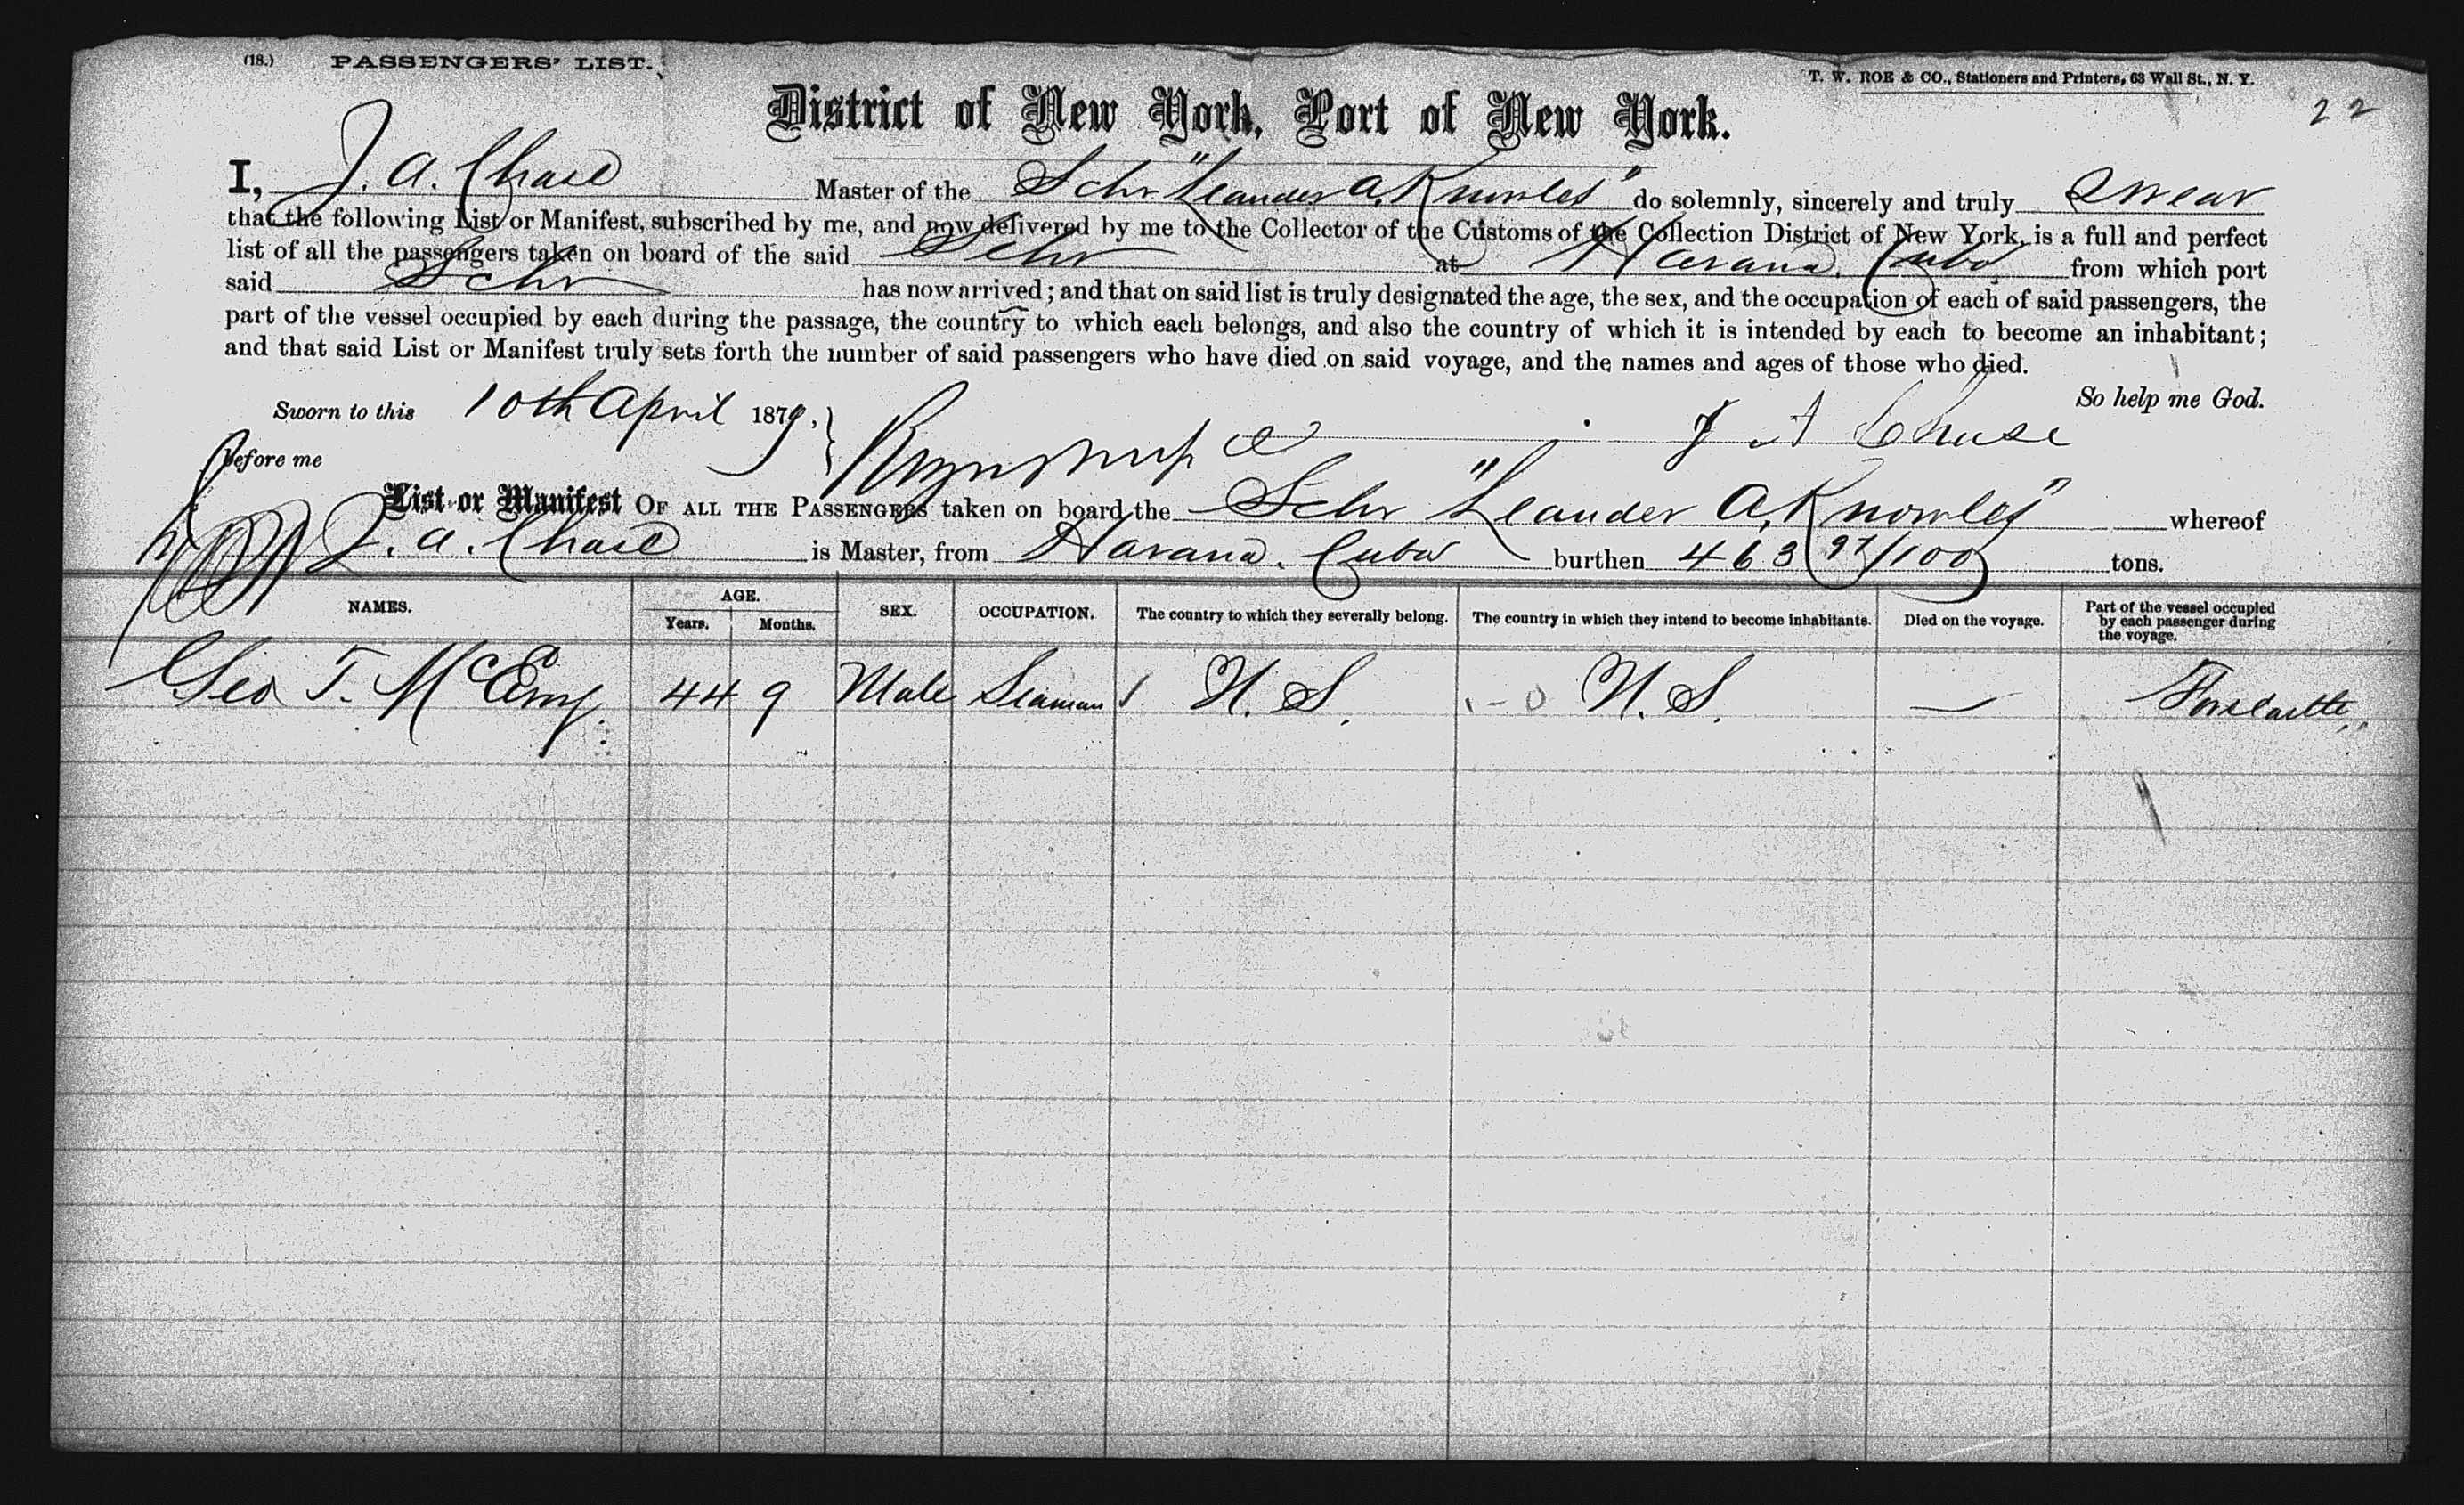 (18.) PASSENGERS' LIST.
T. W. ROE & CO., Stationers and Printers, 63 Wall St., N. Y.
22
District of New York, Port of New York.
I, J. A. Chase Master of the Schr "Leander A. Knowles" do solemnly, sincerely and truly Swear
that the following List or Manifest, subscribed by me, and now delivered by me to the Collector of the Customs of the Collection District of New York, is a full and perfect
list of all the passengers taken on board of the said Schr at Havana, Cuba from which port
said Schr has now arrived; and that on said list is truly designated the age, the sex, and the occupation of each of said passengers, the
part of the vessel occupied by each during the passage, the country to which each belongs, and also the country of which it is intended by each to become an inhabitant;
and that said List or Manifest truly sets forth the number of said passengers who have died on said voyage, and the names and ages of those who died.
So help me God.
Sworn to this 10th April 1879. J A Chase
Before me
List or Manifest OF ALL THE PASSENGERS taken on board the Schr "Leander A. Knowles" whereof
J. A. Chase is Master, from Havana, Cuba burthen 463 97/100 tons.
NAMES. AGE. Years. Months. SEX. OCCUPATION. The country to which they severally belong. The country in which they intend to become inhabitants. Died on the voyage. Part of the vessel occupied by each passenger during the voyage.
Geo T. McEmy. 44 9 Male Seaman U. S. U. S. — Forecastle